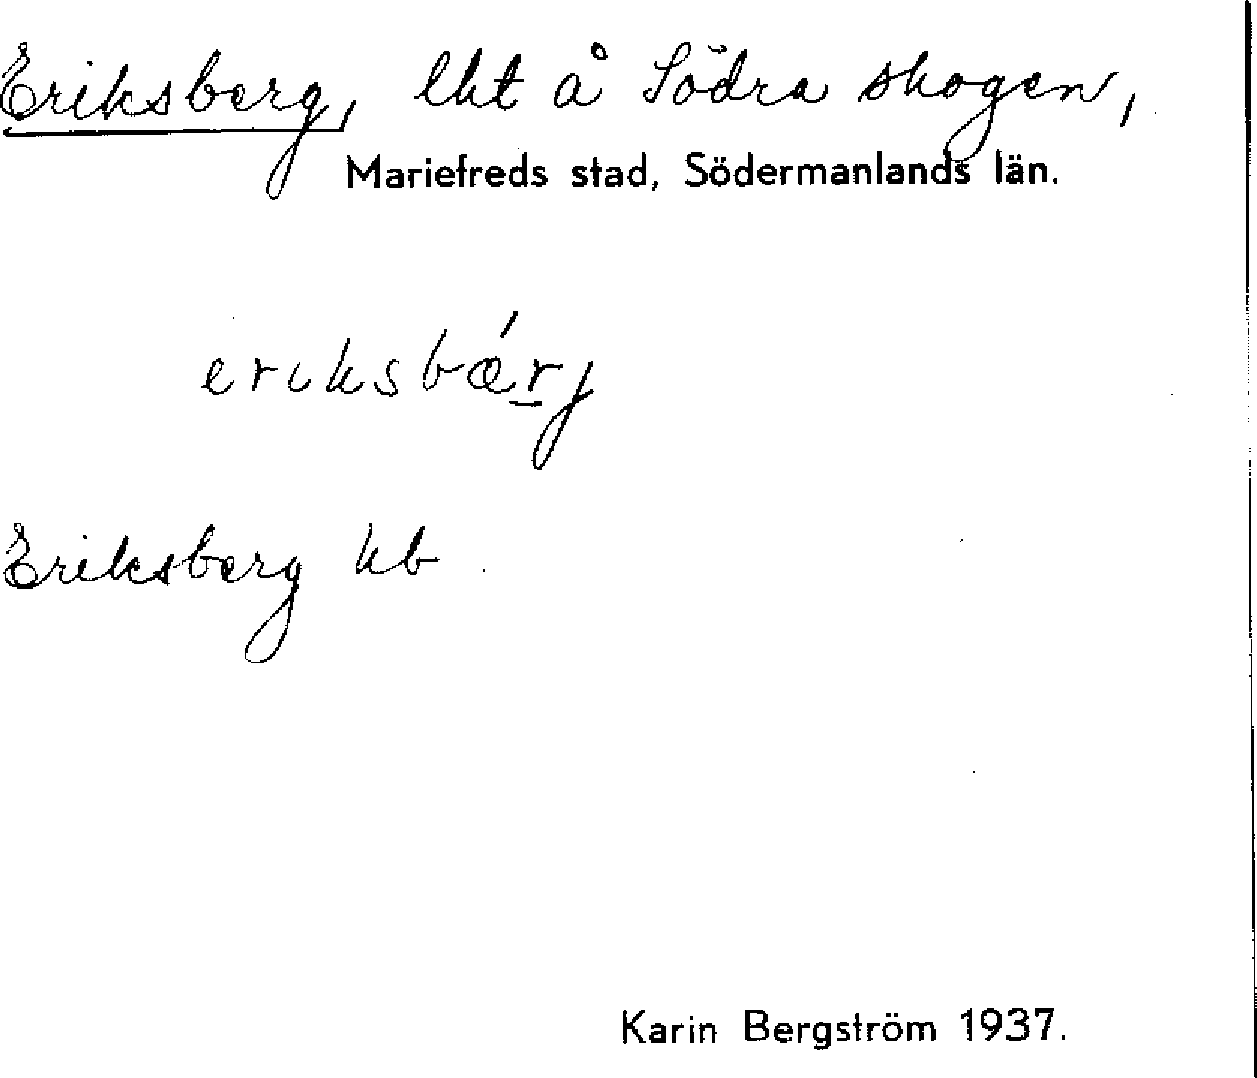 Eriksberg, lht å Södra skogen,
Mariefreds stad, Södermanlands län.
eriksbǽrj
Eriksberg kb
Karin Bergström 1937.